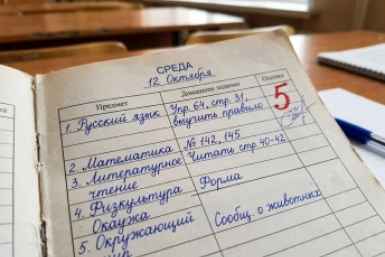 СРЕДА
12 Октября
Предмет Домашнее задание Оценка
1. Русский язык Упр 64, стр. 31, 5
выучить правило
2. Математика № 142, 145
3. Литературное Читать стр 40-42
чтение
4. Физкультура Форма
Окаужа
5. Окружающий Сообщ. о животных
мир